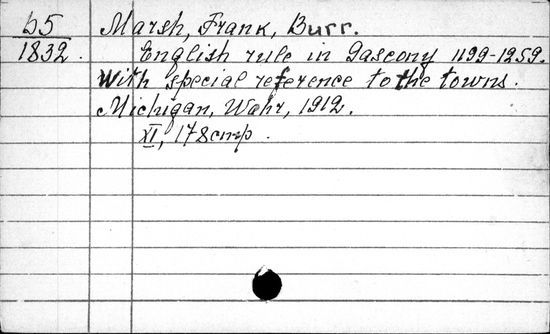 b5 Marsh, Frank, Burr.
1832. English rule in Gascony 1199-1259.
With special reference to the towns.
Michigan, Wahr, 1912.
XI, 178 cmp.